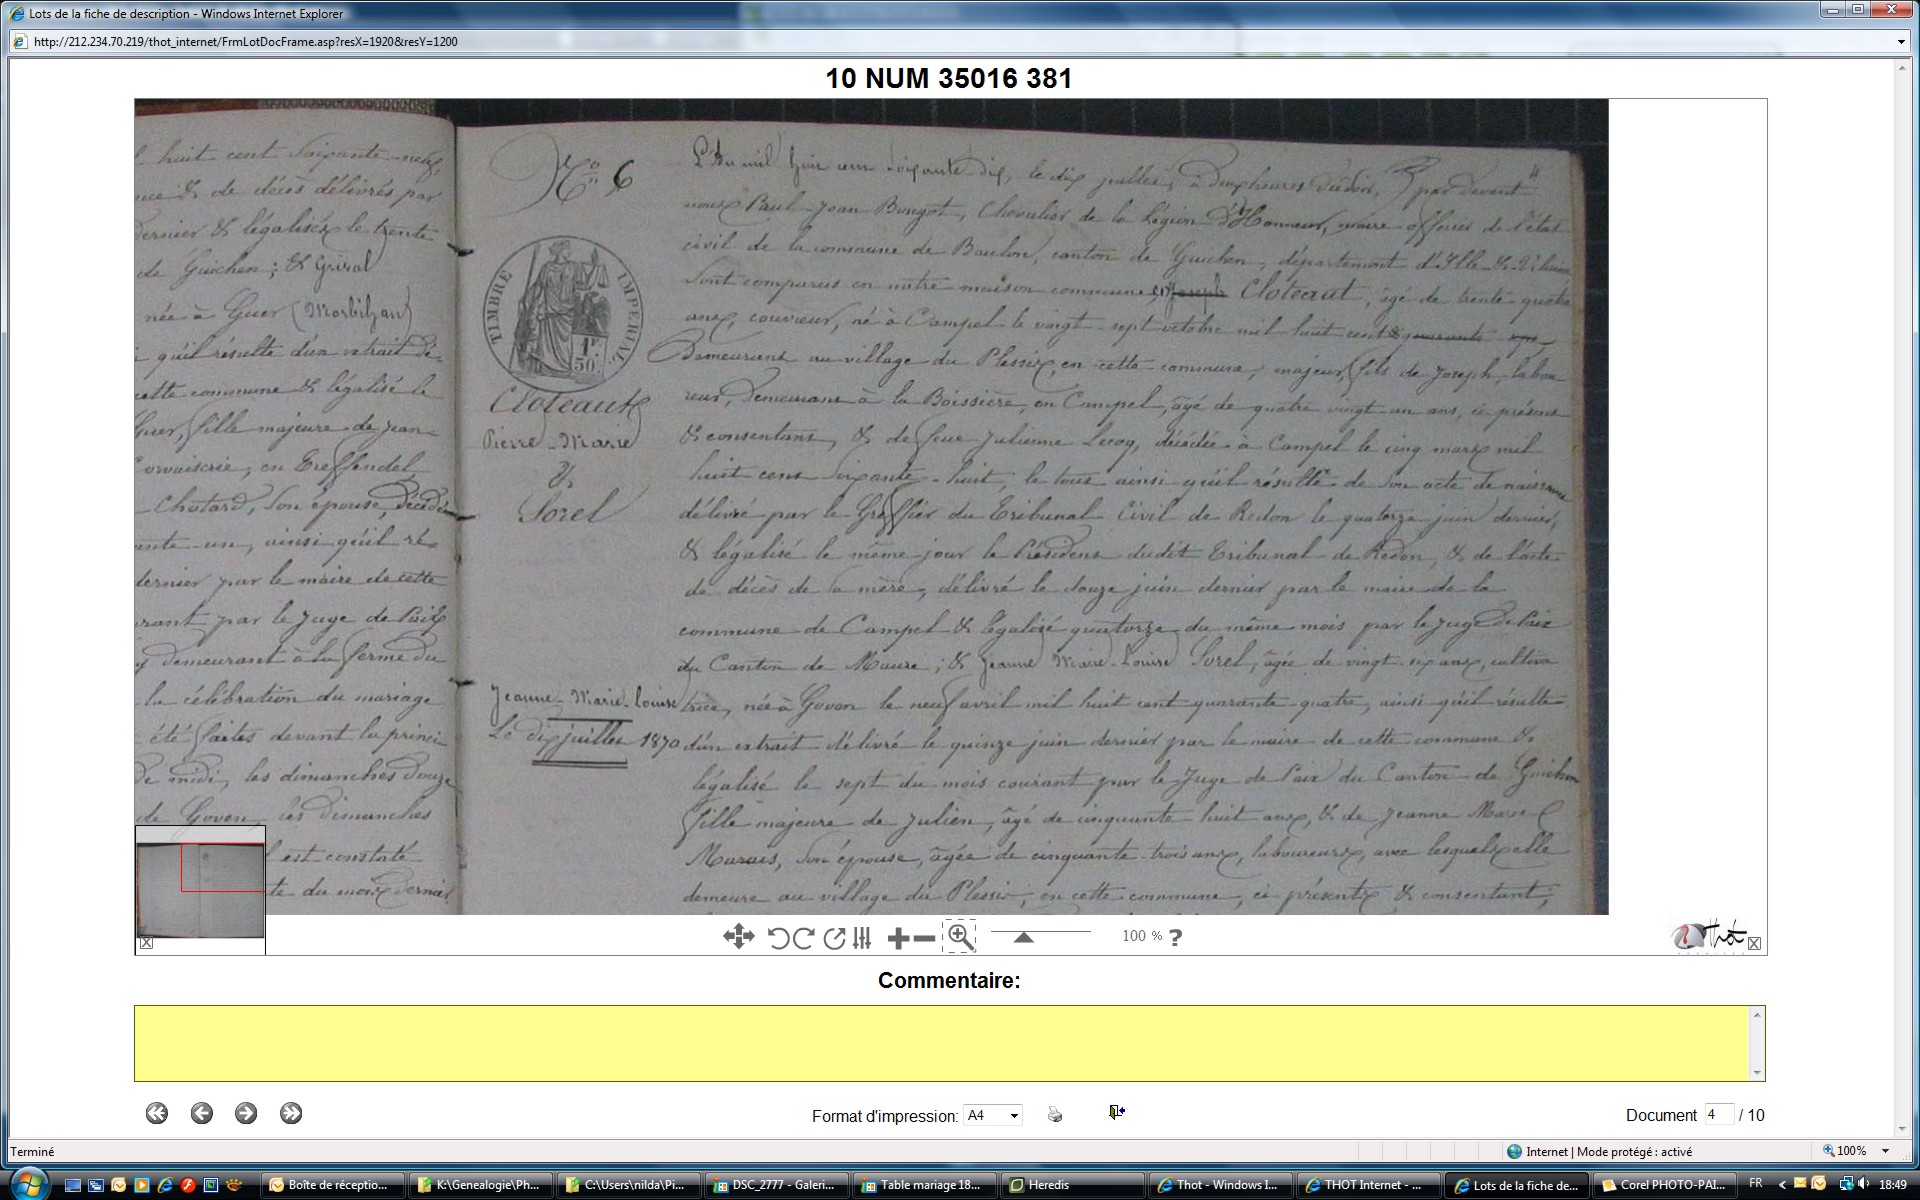 Lots de la fiche de description - Windows Internet Explorer
http://212.234.70.219/thot_internet/FrmLotDocFrame.asp?resX=1920&resY=1200
10 NUM 35016 381
huit cent soixante-neuf,
de décès délivrés par
dernier & légalisés le trente
de Guichen; &
née à Guer (Morbihan)
qu'il résulte d'un extrait dé-
cette commune & légalisé le
Guer, fille majeure de Jean
en Treffendel,
Chotard, son épouse, décédée
ainsi qu'il ré-
dernier par le maire de cette
par le Juge de Paix
demeurant à la ferme du
la célébration du mariage
été faites devant la princi
de midi, les dimanches douze
de Goven, les dimanches
est constaté
du mois dernier
No 6
TIMBRE IMPERIAL
1F.
50.
Cloteaux
Pierre-Marie
&
Sorel
Jeanne-Marie-Louise
Le dix juillet 1870
L'An mil huit cent soixante dix, le dix juillet, à deux heures du soir, par devant
nous Paul-Jean Bougot, Chevalier de la Légion d'Honneur, maire officier de l'état
civil de la commune de Baulon, canton de Guichen, département d'Ille & Vilaine
Sont comparus en notre maison commune Joseph Cloteaut, âgé de trente quatre
ans, couvreur, né à Campel le vingt-sept octobre mil huit cent quarante
demeurant au village du Plessix, en cette commune, majeur, fils de Joseph, labou
reur, demeurant à la Boissière, en Campel, âgé de quatre vingt un ans, ci présent
& consentant, & de feue Julienne Lecoq, décédée à Campel le cinq mars mil
huit cent soixante-huit, le tout ainsi qu'il résulte de son acte de naissance
délivré par le Greffier du Tribunal Civil de Redon le quatorze juin dernier,
& légalisé le même jour le Président dudit Tribunal de Redon, & de l'acte
de décès de sa mère, délivré le douze juin dernier par le maire de la
commune de Campel & légalisé quatorze du même mois par le Juge de Paix
du Canton de Maure; & Jeanne Marie-Louise Sorel, âgée de vingt-six ans, cultiva
trice, née à Goven le neuf avril mil huit cent quarante-quatre, ainsi qu'il résulte
d'un extrait délivré le quinze juin dernier par le maire de cette commune &
légalisé le sept du mois courant par le Juge de Paix du Canton de Guichen
fille majeure de Julien, âgé de cinquante huit ans, & de Jeanne Marie
Marais, son épouse, âgée de cinquante-trois ans, laboureurs, avec lesquels elle
demeure au village du Plessis, en cette commune, ci présents & consentant;
100 % ?
Thot
Commentaire:
Format d'impression: A4
Document 4 / 10
Terminé
Internet | Mode protégé : activé
100%
Boîte de réceptio...
K:\Genealogie\Ph...
C:\Users\nilda\Pi...
DSC_2777 - Galeri...
Table mariage 18...
Heredis
Thot - Windows I...
THOT Internet - ...
Lots de la fiche de...
Corel PHOTO-PAI...
FR
18:49